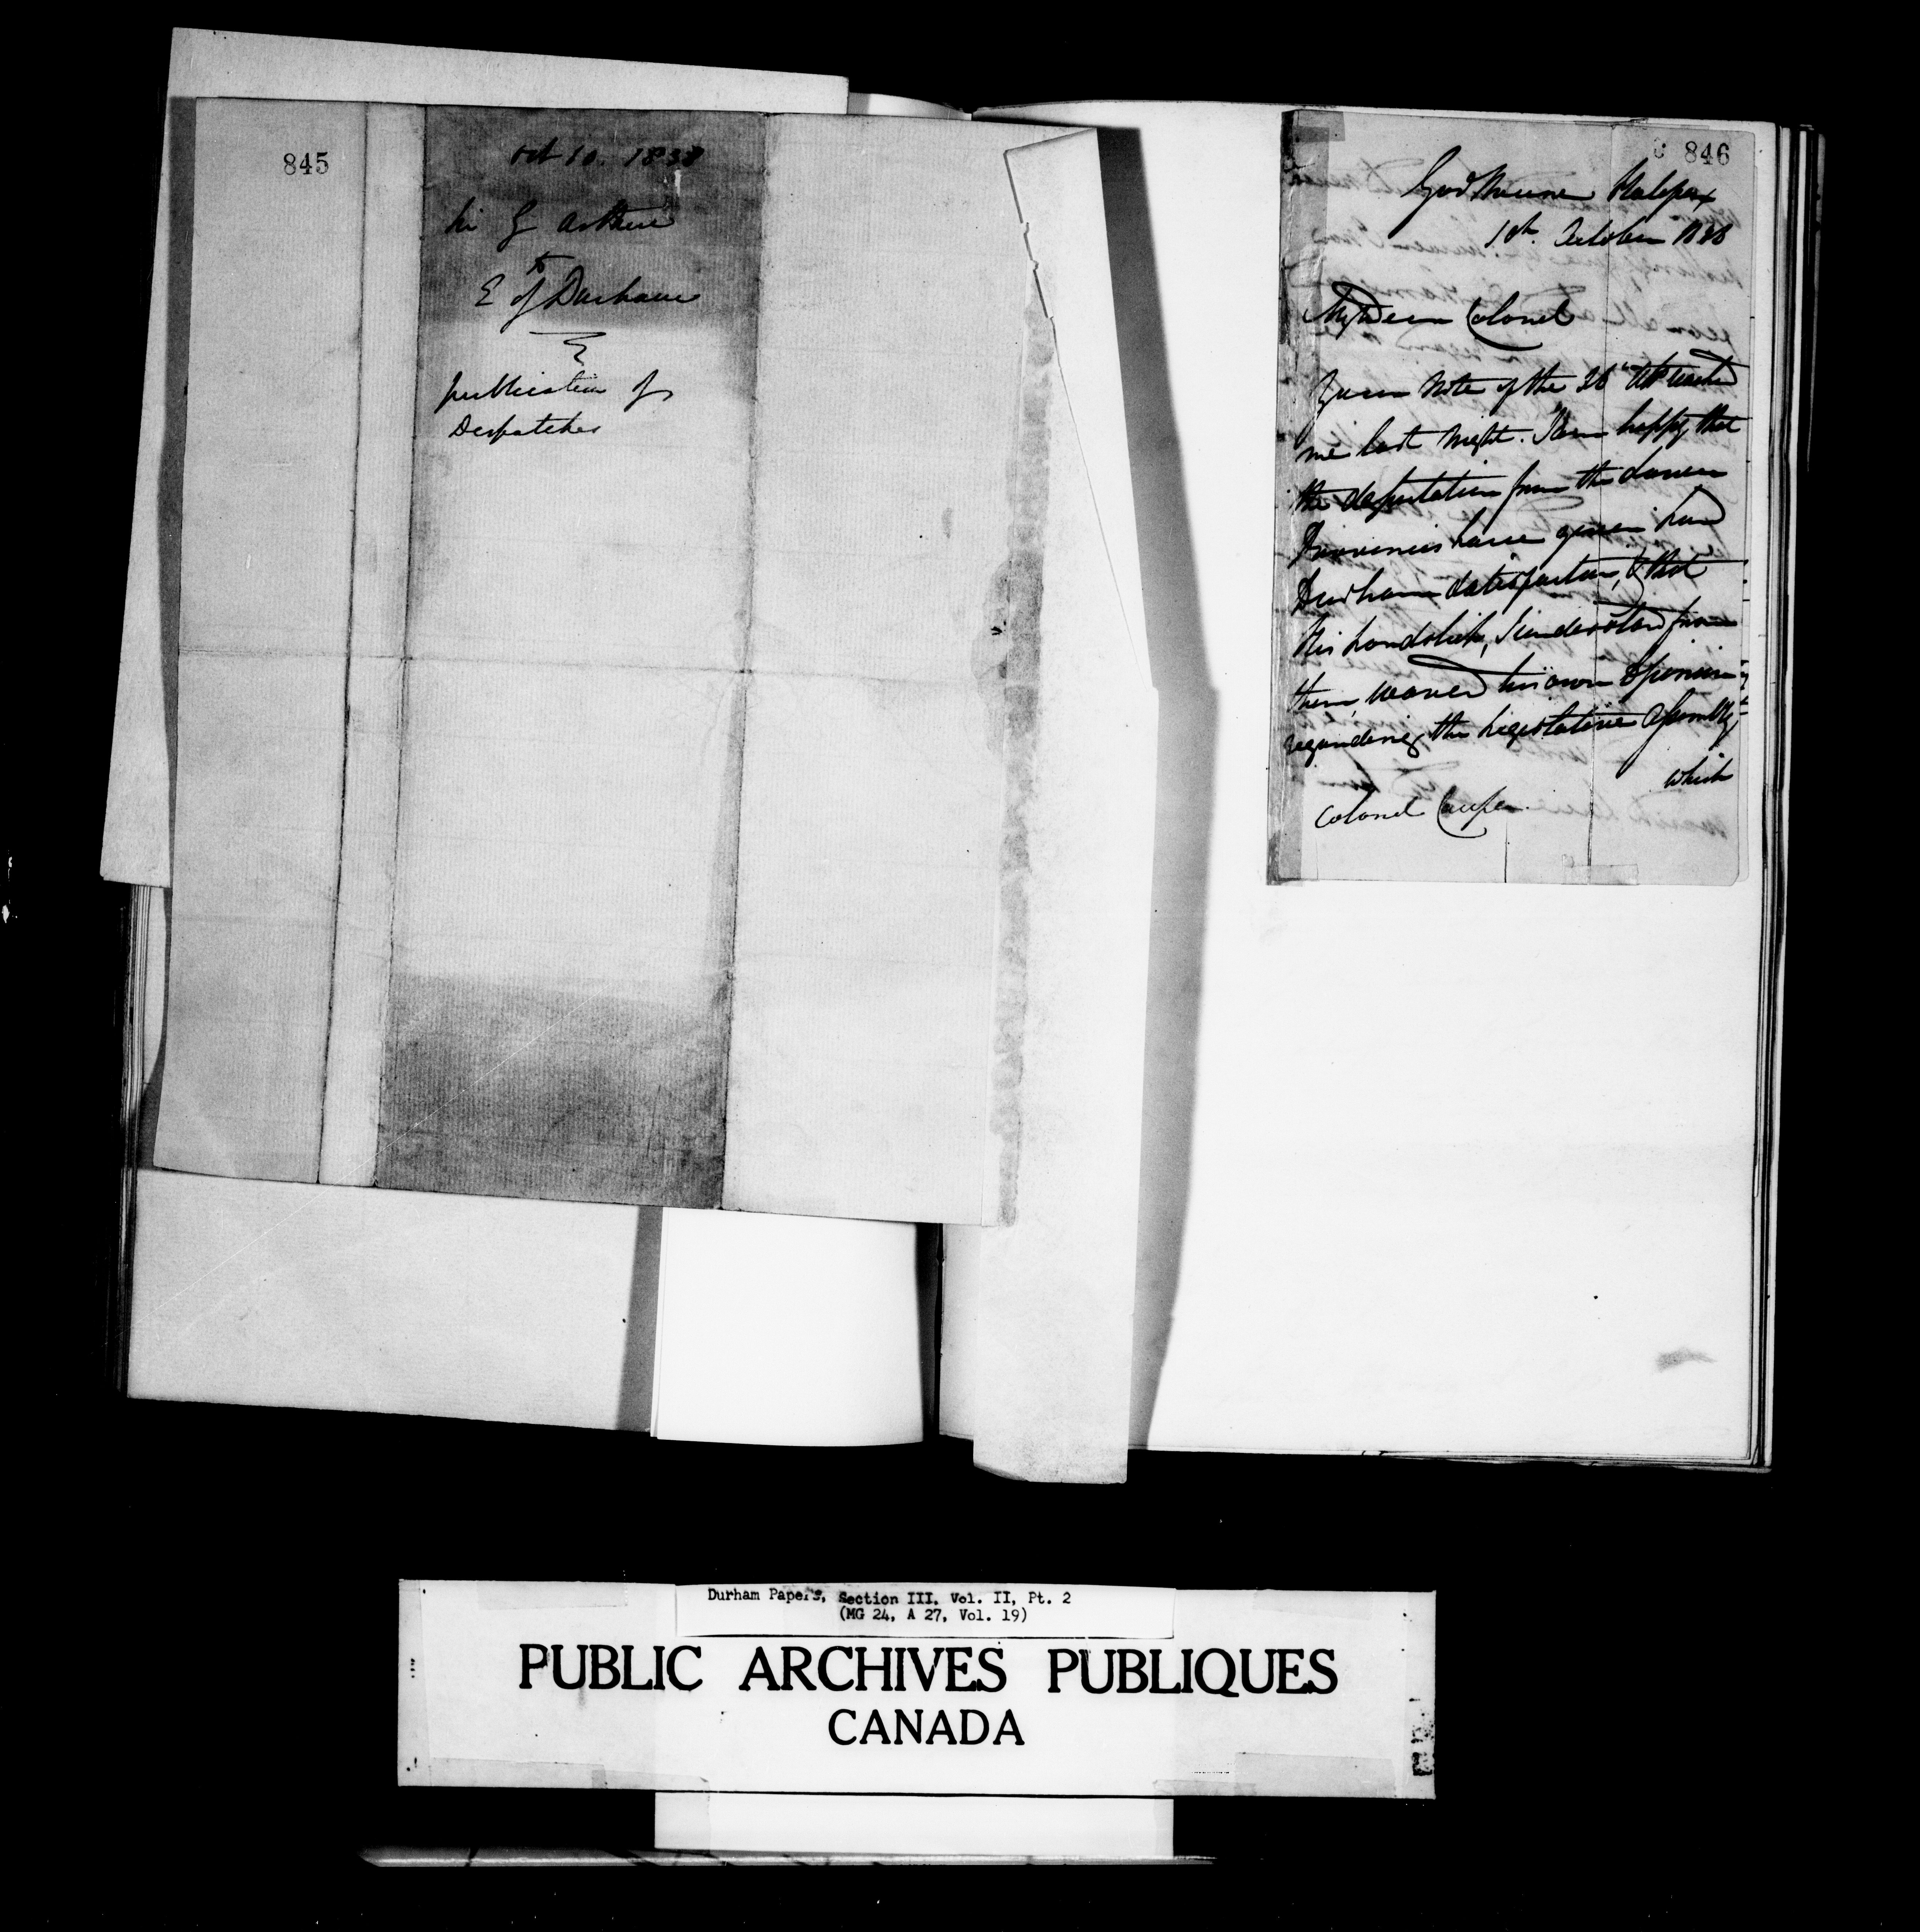 845
Oct 10. 1838
Sir G Arthur
to
E of Durham
publication of
Despatches
846
Govt House Halifax
10th October 1838
My Dear Colonel
Your Note of the 26th Ult reached
me last Night. I am happy that
the deputation from the Lower
Provinces have given Lord
Durham satisfaction, & that
His Lordship, I understand from
them, waved his own Opinion
regarding the Legislative Assembly
which
Colonel Couper
Durham Papers, Section III, Vol. II, Pt. 2
(MG 24, A 27, Vol. 19)
PUBLIC ARCHIVES PUBLIQUES
CANADA